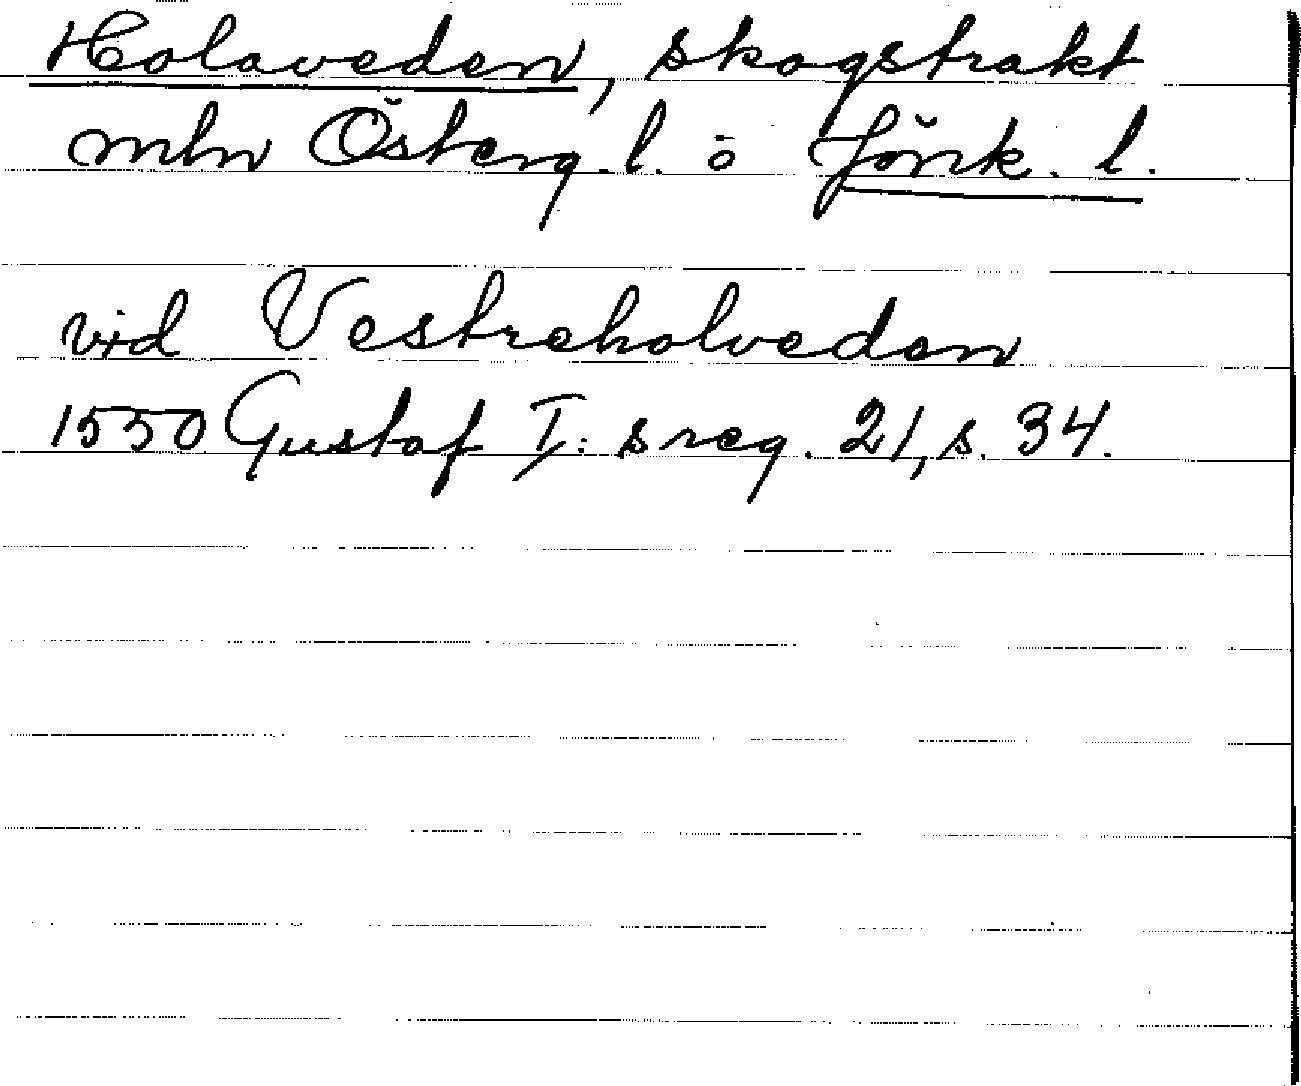 Holaveden, skogstrakt
mln Österg. l. o Jönk. l.
vid Vestreholveden
1550 Gustaf I: s reg. 21, s. 34.